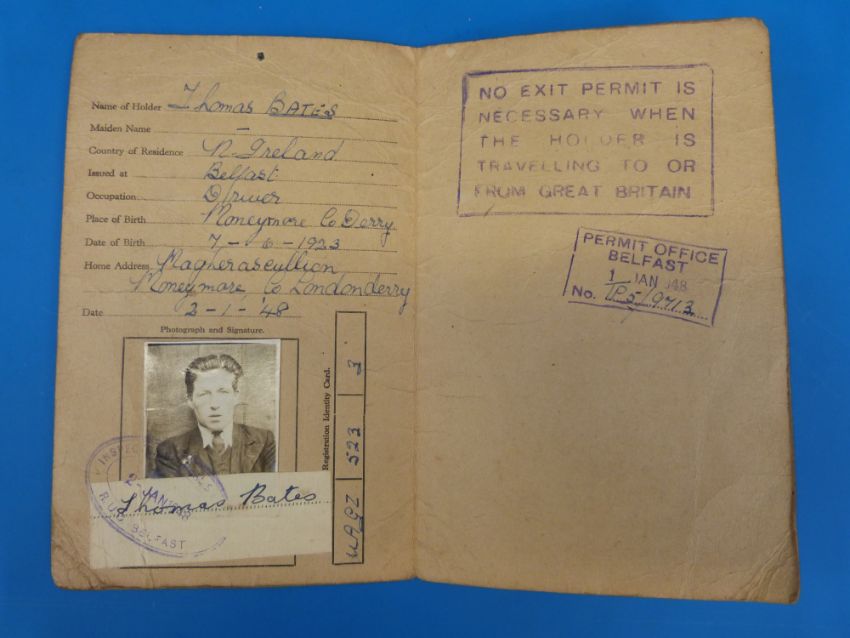 Name of Holder Thomas BATES
Maiden Name –
Country of Residence N. Ireland
Issued at Belfast
Occupation Driver
Place of Birth Moneymore Co Derry
Date of Birth 7 – 6 – 1923
Home Address Magherascullion
Moneymore, Co. Londonderry
Date 2 – 1 – '48
Photograph and Signature.
Thomas Bates
2 - JAN 1948
R.U.C. BELFAST
Registration Identity Card.
UAGZ 523 3
NO EXIT PERMIT IS
NECESSARY WHEN
THE HOLDER IS
TRAVELLING TO OR
FROM GREAT BRITAIN
PERMIT OFFICE
BELFAST
1 JAN 1948
No.